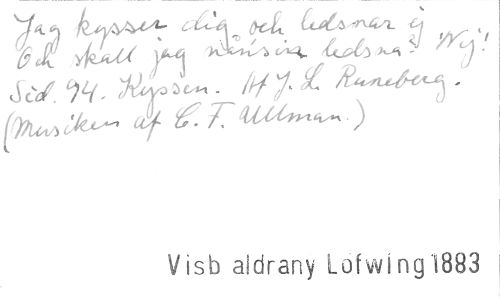 Jag kysser dig, och ledsnar ej
Och skall jag nånsin ledsna? Nej!
Sid. 94. Kyssen. Af J. L. Runeberg.
(Musiken af C. F. Ullman.)
Visb aldrany Lofwing 1883